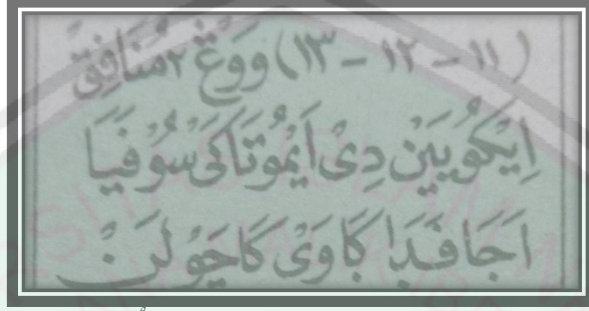 (١١ - ١٢ - ١٣) ووڠ٢ مُنَافِقْ
اِيْكُوْ يَيْن دِىْ اَيْمُوْتَاكَىْ سُوْفَيَا
اَجَا فَدَا كَاوَىْ كَاچَوْلَنْ